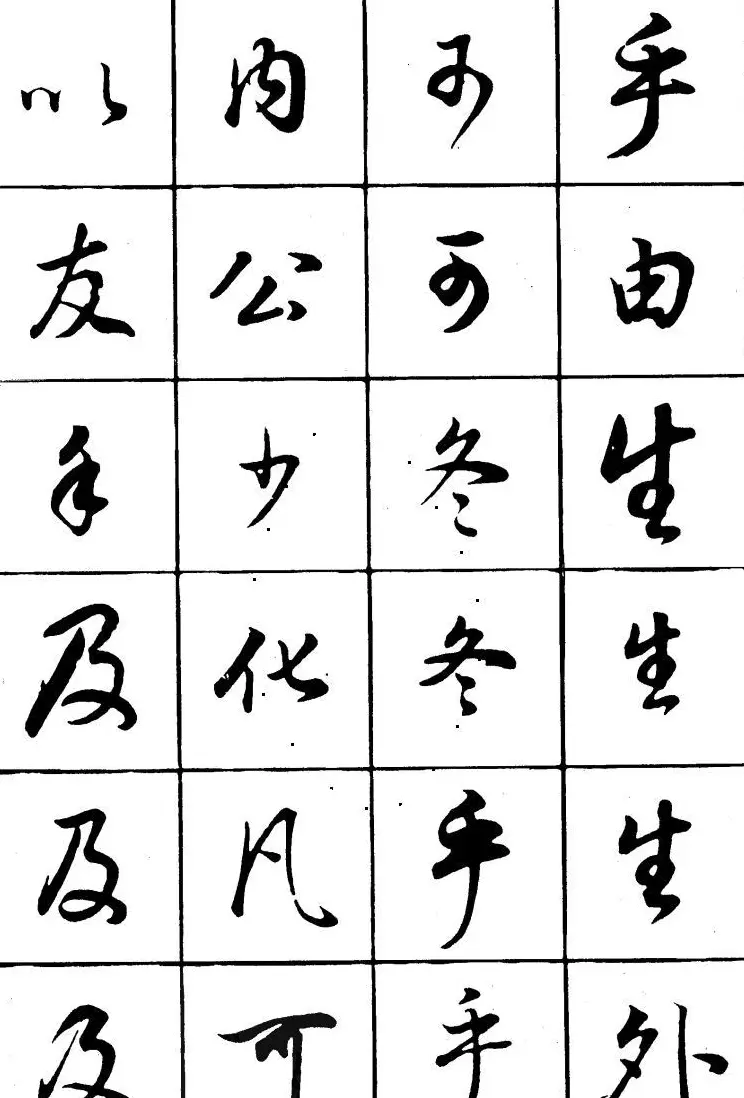 以友手及及及
内公少化凡可
可可冬冬乎乎
乎由生生生外